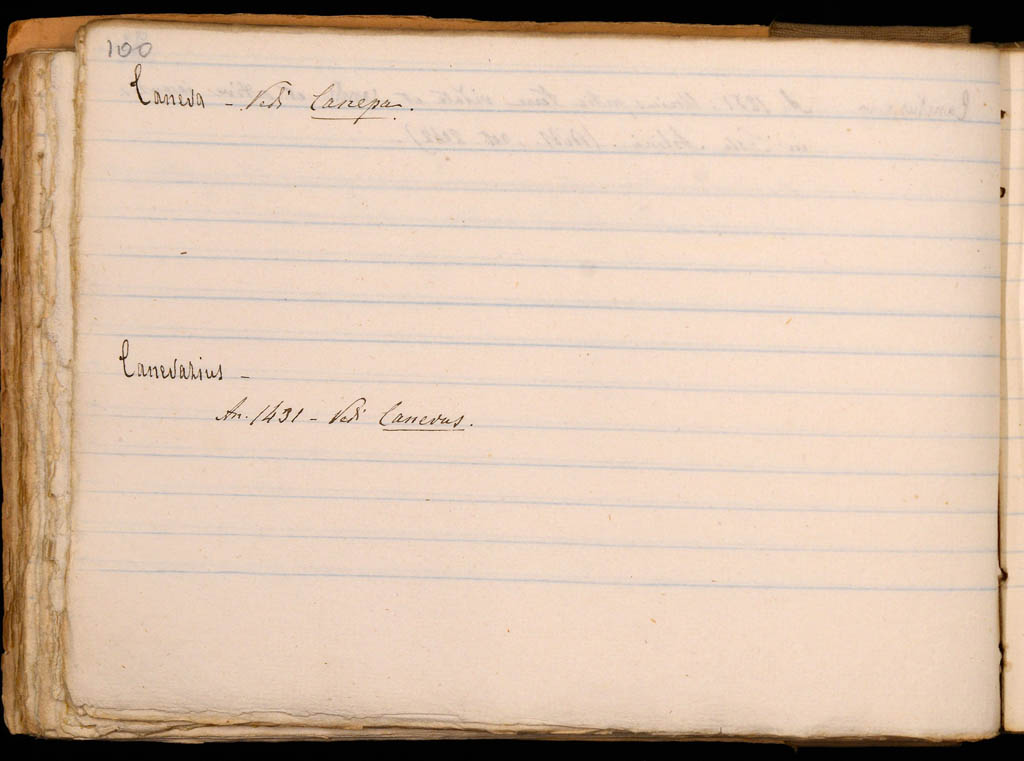 100
Caneva - Vedi Canepa.
Canevarius -
An. 1431 - Vedi Canevus.